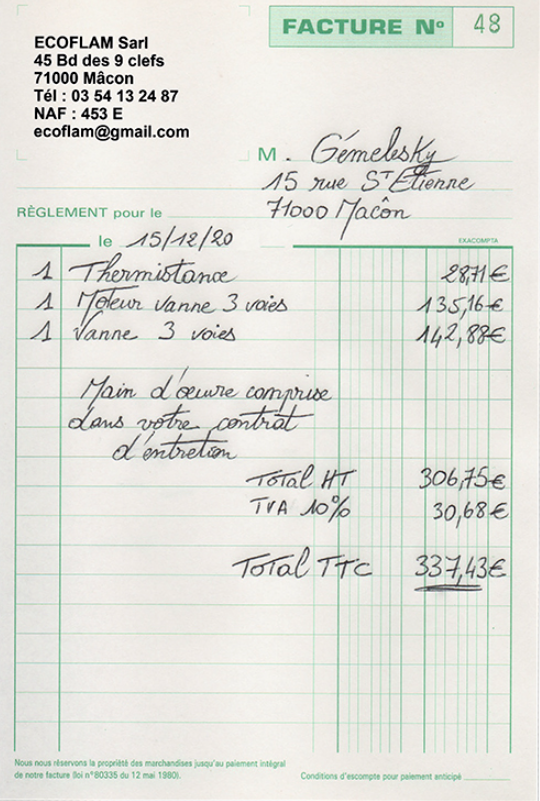 ECOFLAM Sarl
45 Bd des 9 clefs
71000 Mâcon
Tél : 03 54 13 24 87
NAF : 453 E
ecoflam@gmail.com
FACTURE Nº 48
M. Gémelesky
15 rue St Etienne
71000 Macôn
RÈGLEMENT pour le
le 15/12/20
EXACOMPTA
1 Thermistance 28,71€
1 Moteur vanne 3 voies 135,16€
1 Vanne 3 voies 142,88€
Main d'œuvre comprise
dans votre contrat
d'entretien
Total HT 306,75€
TVA 10% 30,68€
Total TTC 337,43€
Nous nous réservons la propriété des marchandises jusqu'au paiement intégral
de notre facture (loi n°80335 du 12 mai 1980).
Conditions d'escompte pour paiement anticipé